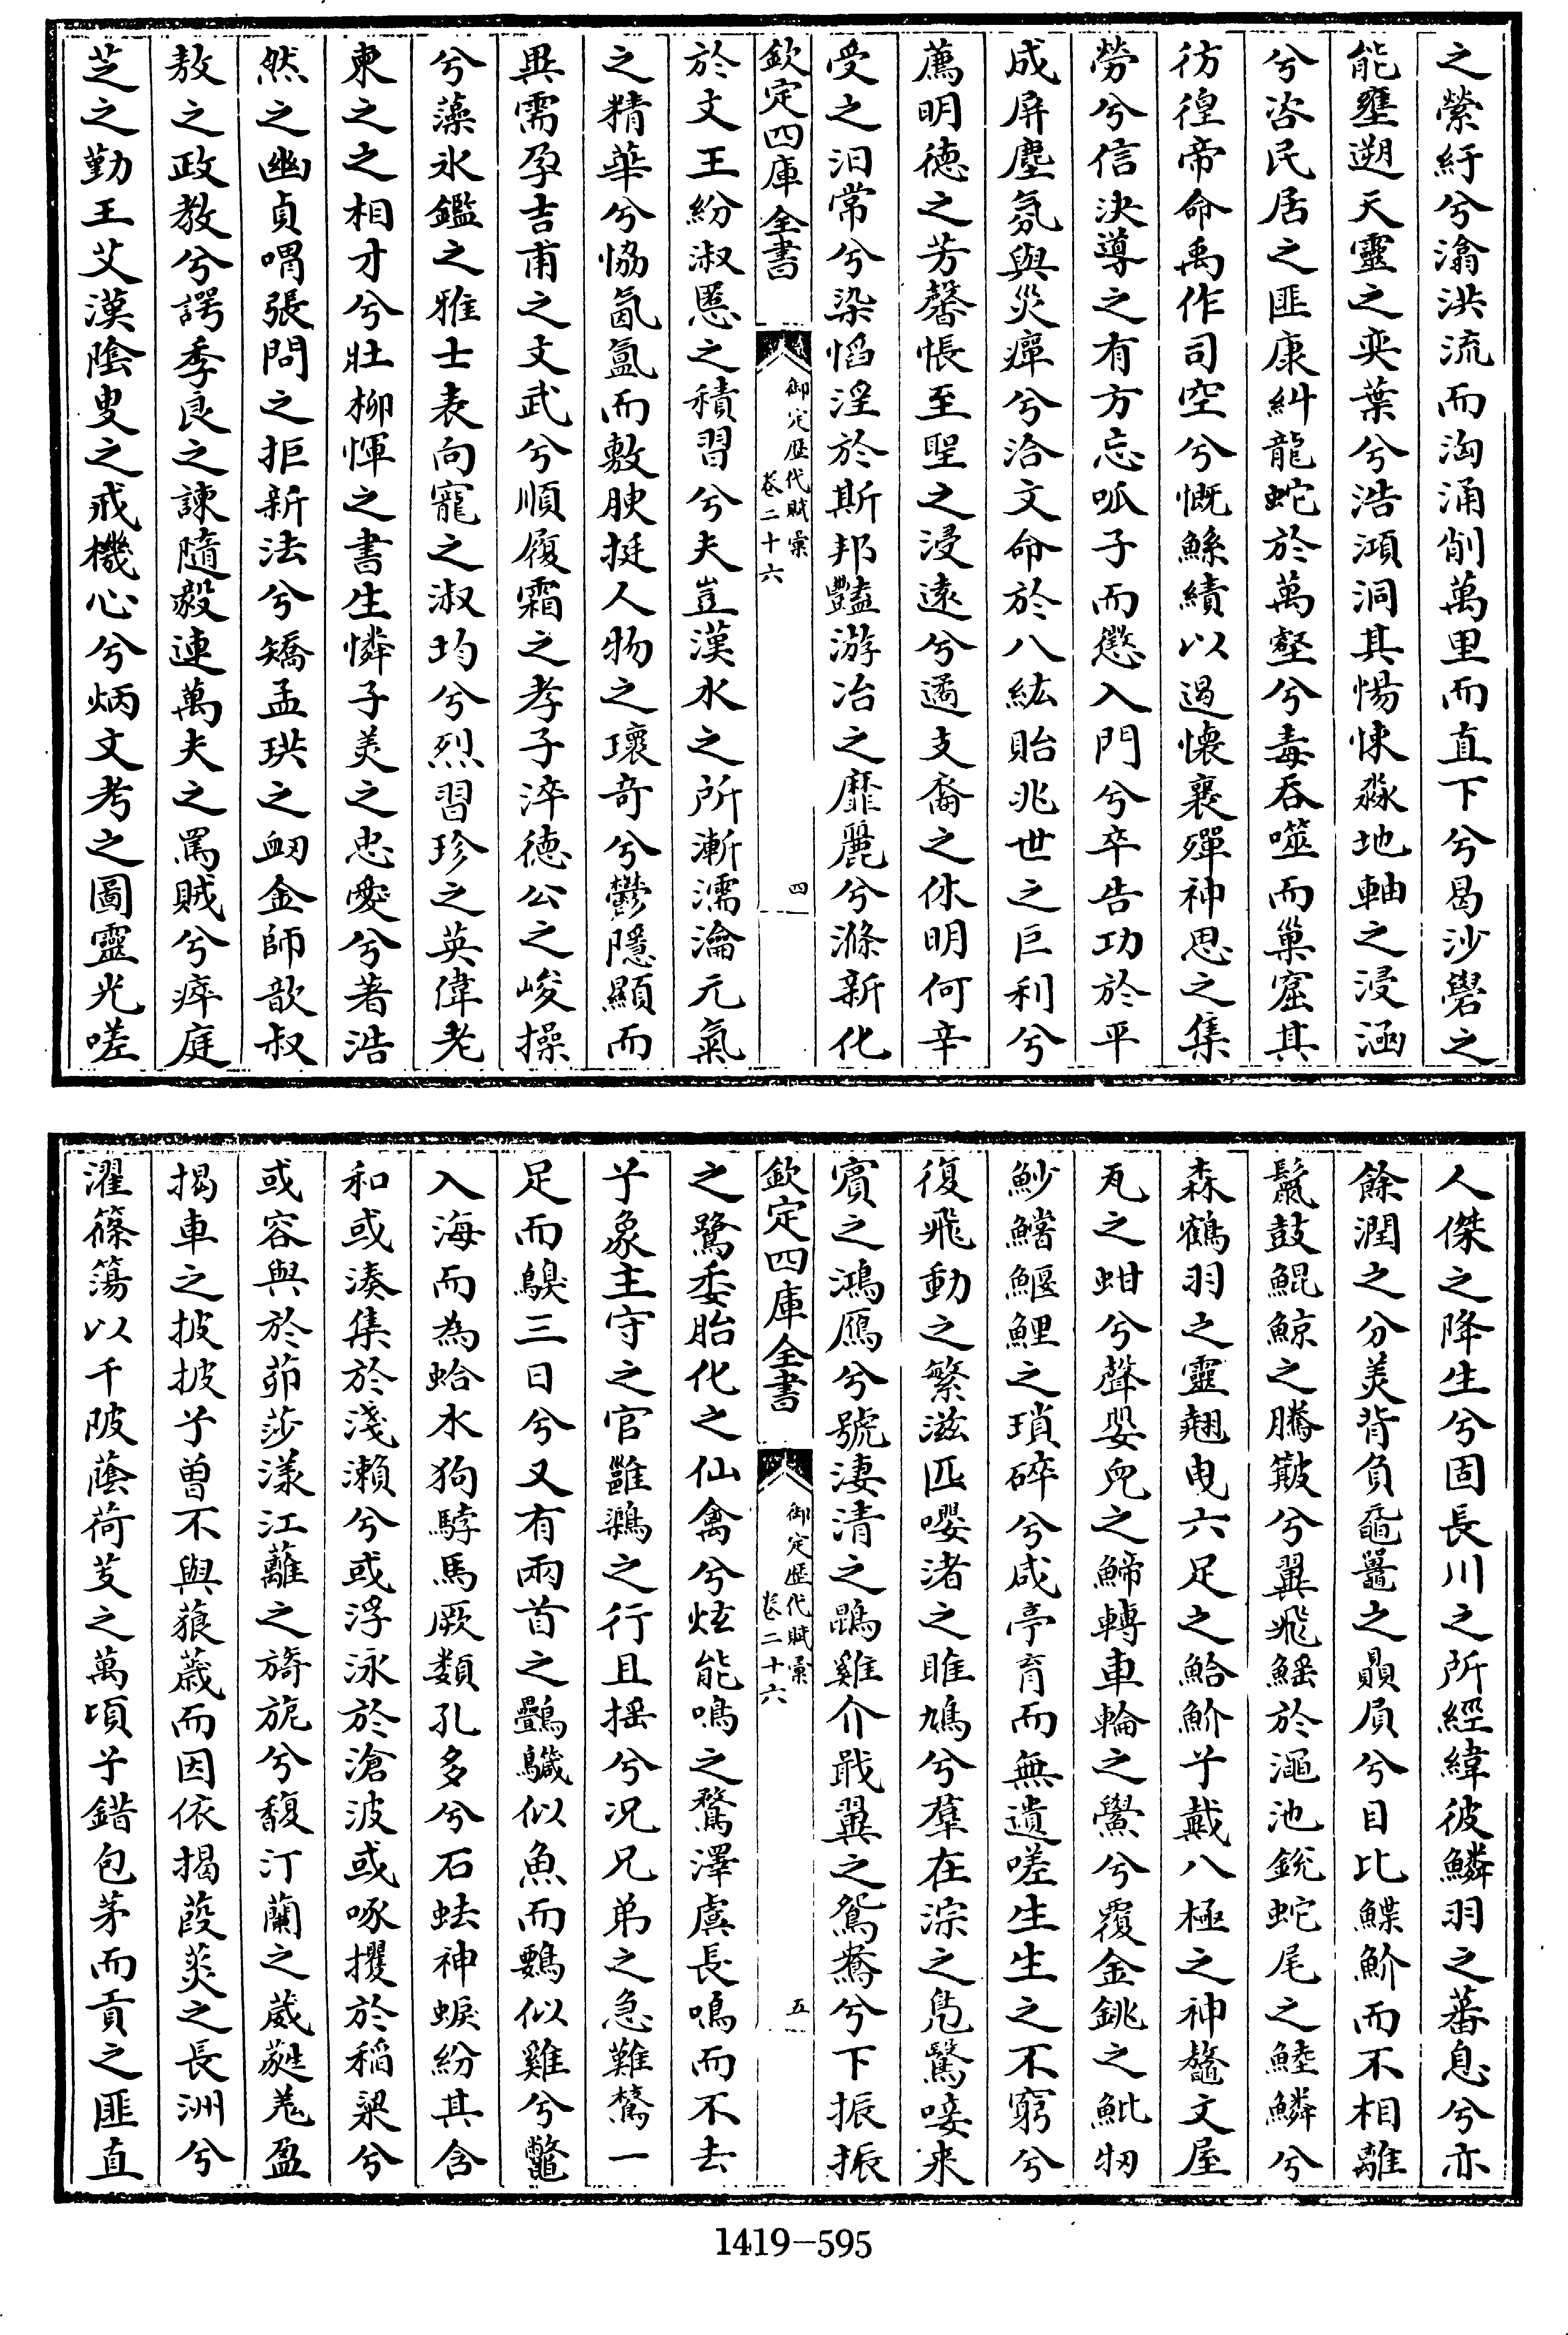 之縈紆兮瀹洪流而洶涌削萬里而直下兮曷沙礐之
能壅遡天靈之奕葉兮浩澒洞其惕悚淼地軸之浸涵
兮咨民居之匪康糾龍蛇於萬壑兮毒吞噬而巢窟其
彷徨帝命禹作司空兮慨鯀績以遏懷襄殫神思之集
勞兮信決導之有方忘呱子而懲入門兮卒告功於平
成屏塵氛與災癉兮洽文命於八紘貽兆世之巨利兮
薦明德之芳馨悵至聖之浸遠兮遹支裔之休明何辛
受之汨常兮染慆淫於斯邦豔游冶之靡麗兮滌新化
欽定四庫全書
御定歴代賦彙
卷二十六
四
於文王紛淑慝之積習兮夫豈漢水之所漸濡瀹元氣
之精華兮協氤氳而敷腴挺人物之瓌奇兮鬱隱顯而
異需孕吉甫之文武兮順履霜之孝子淬德公之峻操
兮藻氷鑑之雅士表向寵之淑均兮烈習珍之英偉老
東之之相才兮壯柳惲之書生憐子美之忠愛兮著浩
然之幽貞喟張問之拒新法兮矯孟珙之衂金師歆叔
敖之政教兮諤季良之諫隨毅連萬夫之罵賊兮瘁庭
芝之勤王艾漢陰叟之戒機心兮炳文考之圖靈光嗟
人傑之降生兮固長川之所經緯彼鱗羽之蕃息兮亦
餘潤之分美背負黿鼉之贔屓兮目比鰈魪而不相離
鬛鼓鯤鯨之騰簸兮翼飛鰩於澠池銳蛇尾之鯥鱗兮
森鶴羽之靈翹電六足之鮯魪兮戴八極之神鼇文屋
瓦之蚶兮聲嬰兒之鯑轉車輪之鱟兮覆金銚之魮物
魦鱨鰋鯉之瑣碎兮咸亭育而無遺嗟生生之不窮兮
復飛動之繁滋匹嚶渚之雎鳩兮羣在淙之鳧鷖唼来
賓之鴻鴈兮號淒清之鵾雞介戢翼之鴛鴦兮下振振
欽定四庫全書
御定歴代賦彙
卷二十六
五
之鷺委胎化之仙禽兮炫能鳴之鶩澤虞長鳴而不去
兮象主守之官雝鶏之行且揺兮况兄弟之急難鶩一
足而鷍三日兮又有兩首之鸓鱵似魚而鷜似雞兮鼈
入海而為蛤水狗䮷馬厥類孔多兮石蚨神蜧紛其含
和或湊集於淺瀨兮或浮泳於滄波或啄攫於稻粱兮
或容與於茆莎漾江蘺之旖旎兮馥汀蘭之葳蕤羌盈
揭車之披披兮曾不與蒗蕆而因依揭葭菼之長洲兮
濯篠簜以千陂蔭荷芰之萬頃兮錯包茅而貢之匪直
1419-595